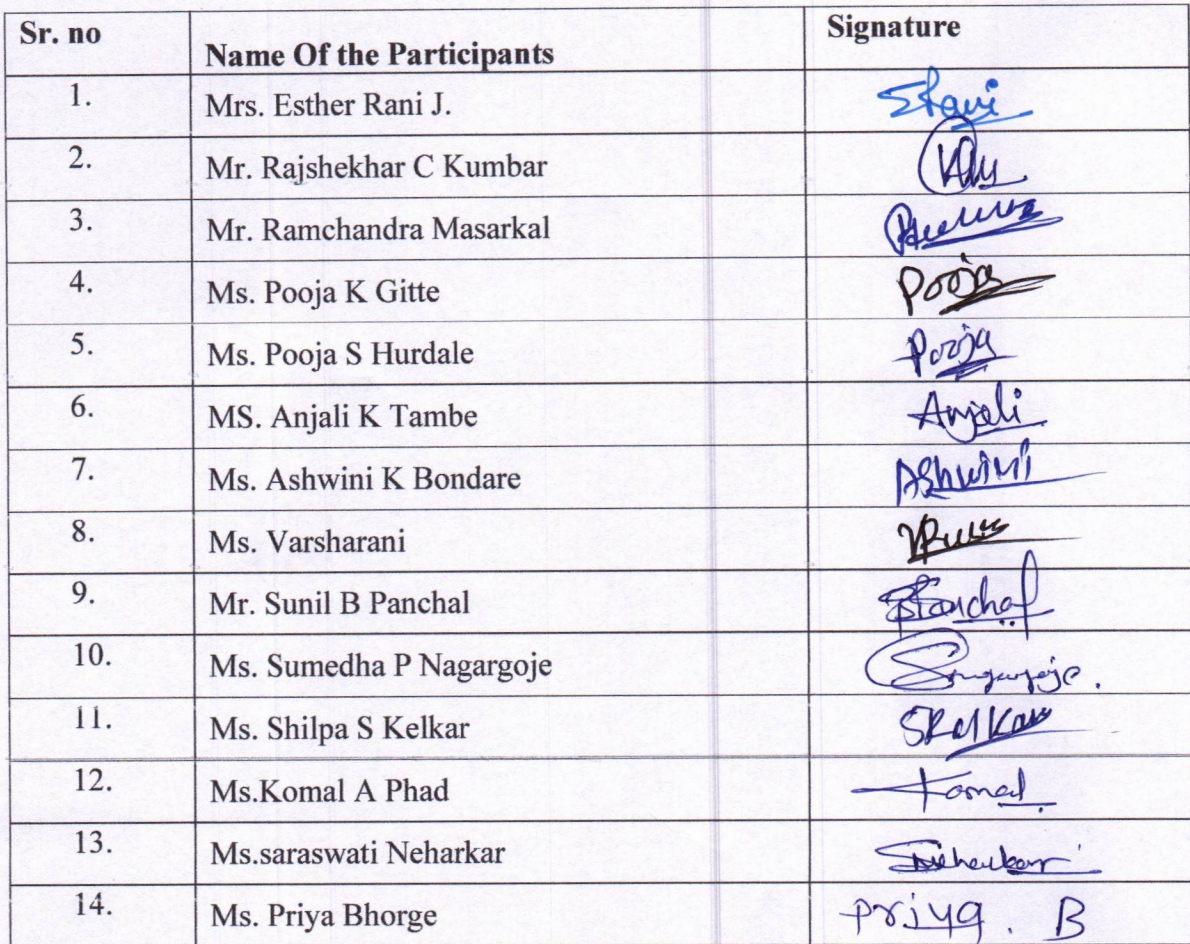 Sr. no Name Of the Participants Signature
1. Mrs. Esther Rani J. SRani
2. Mr. Rajshekhar C Kumbar
3. Mr. Ramchandra Masarkal
4. Ms. Pooja K Gitte Pooja
5. Ms. Pooja S Hurdale Pooja
6. MS. Anjali K Tambe Anjali
7. Ms. Ashwini K Bondare Ashwini
8. Ms. Varsharani
9. Mr. Sunil B Panchal SPanchal
10. Ms. Sumedha P Nagargoje
11. Ms. Shilpa S Kelkar SKelkar
12. Ms.Komal A Phad Komal
13. Ms.saraswati Neharkar
14. Ms. Priya Bhorge Priya. B